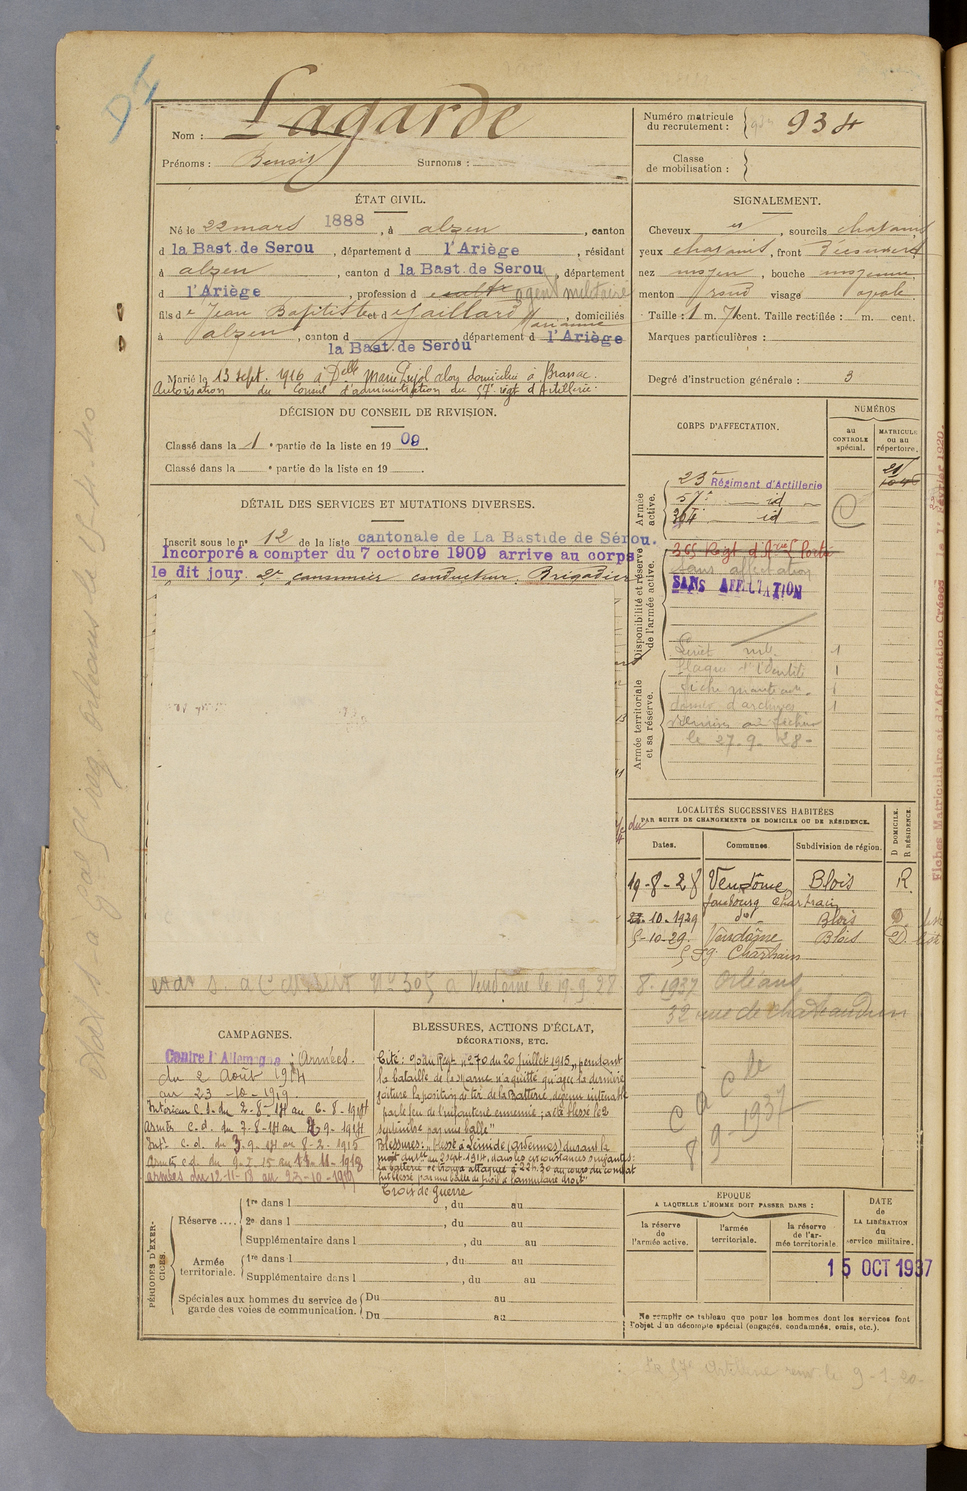 DI
Nom : Lagarde
Prénoms : Surnoms :
Numéro matricule du recrutement : 934
Classe de mobilisation :
ÉTAT CIVIL.
Né le 22 mars 1888, à alzen, canton
d la Bast. de Serou, département d l'Ariège, résidant
à alzen, canton d la Bast. de Serou, département
d l'Ariège, profession d agent militaire
fils d e Jean Baptiste et d e Gaillard Marianne, domiciliés
à alzen, canton d la Bast. de Serou, département d l'Ariège
Marié le 13 sept. 1916 à Delle Marie Pujol domiciliée à Brassac.
Autorisation du Conseil d'administration du 57e régt d'Artillerie.
SIGNALEMENT.
Cheveux et, sourcils chatains
yeux chatains, front découvert
nez moyen, bouche moyenne,
menton rond visage ovale
Taille : 1 m. 7 cent. Taille rectifiée : m. cent.
Marques particulières :
Degré d'instruction générale : 3
DÉCISION DU CONSEIL DE REVISION.
Classé dans la 1 e partie de la liste en 1909.
Classé dans la e partie de la liste en 19
DÉTAIL DES SERVICES ET MUTATIONS DIVERSES.
Inscrit sous le n° 12 de la liste cantonale de La Bastide de Sérou.
Incorporé a compter du 7 octobre 1909 arrive au corps
le dit jour. 2e canonnier conducteur. Brigadier
CORPS D'AFFECTATION.
NUMÉROS
au CONTROLE spécial.
MATRICULE ou au répertoire.
Armée active.
23e Régiment d'Artillerie
57e id
id
Disponibilité et réserve de l'armée active.
365 Régt d'Arie Porté
Sans affectation
SANS AFFECTATION
Livret mle 1
Plaque d'identité 1
1
dossier d'archives 1
le 27-9-28-
Armée territoriale et sa réserve.
LOCALITÉS SUCCESSIVES HABITÉES
PAR SUITE DE CHANGEMENTS DE DOMICILE OU DE RÉSIDENCE.
Dates. Communes. Subdivision de région. D DOMICILE. R RÉSIDENCE.
19-8-28 Vendôme Blois R
faubourg Chartrain
-10-1929 do Blois D
5-10-29. Vendôme Blois D.
5 Fg Chartrain
8. 1937 Orléans
32 rue de Chateaudun
à Vendôme le 19.9.28
CAMPAGNES.
Contre l'Allemagne : Armées.
du 2 Août 1914
au 23-10-1919.
Intérieur C.S. du 2-8-14 au 6-8-1914
Armées c.d. du 7-8-14 au 2-9-1914
Intr. c.d. du 3-9-14 au 8-2-1915
Armées c.d. du 9-2-15 au 11-11-1918
armées du 12-11-18 au 23-10-1919
BLESSURES, ACTIONS D'ÉCLAT,
DÉCORATIONS, ETC.
Cité : du Régt n° 270 du 20 Juillet 1915 "pendant
la bataille de la Marne n'a quitté qu'avec la dernière
voiture la position de tir de la Batterie, devenue intenable
par le feu de l'infanterie ennemie ; a été blessé le 2
septembre par une balle"
Blessures : blessé à Semide (ardennes) durant la
nuit du 1er au 2 sept. 1914, dans les circonstances suivantes :
la batterie se trouva attaquée à 22h.30 au cours du combat
fut blessé par une balle de fusil à l'annulaire droit"
Croix de Guerre
CACC le
8-9-1937
PÉRIODES D'EXERCICES.
Réserve .... 1re dans l , du au
2e dans l , du au
Supplémentaire dans l , du au
Armée territoriale. 1re dans l , du au
Supplémentaire dans l , du au
Spéciales aux hommes du service de garde des voies de communication. Du au
Du au
ÉPOQUE
A LAQUELLE L'HOMME DOIT PASSER DANS :
la réserve de l'armée active.
l'armée territoriale.
la réserve de l'armée territoriale.
DATE DE LA LIBÉRATION du service militaire.
15 OCT 1937
Ne remplir ce tableau que pour les hommes dont les services font
l'objet d'un décompte spécial (engagés, condamnés, omis, etc.).
57e Artillerie le 9-1-20-
Fiches Matriculaire et d'Affectation Créées le 1er Février 1920.